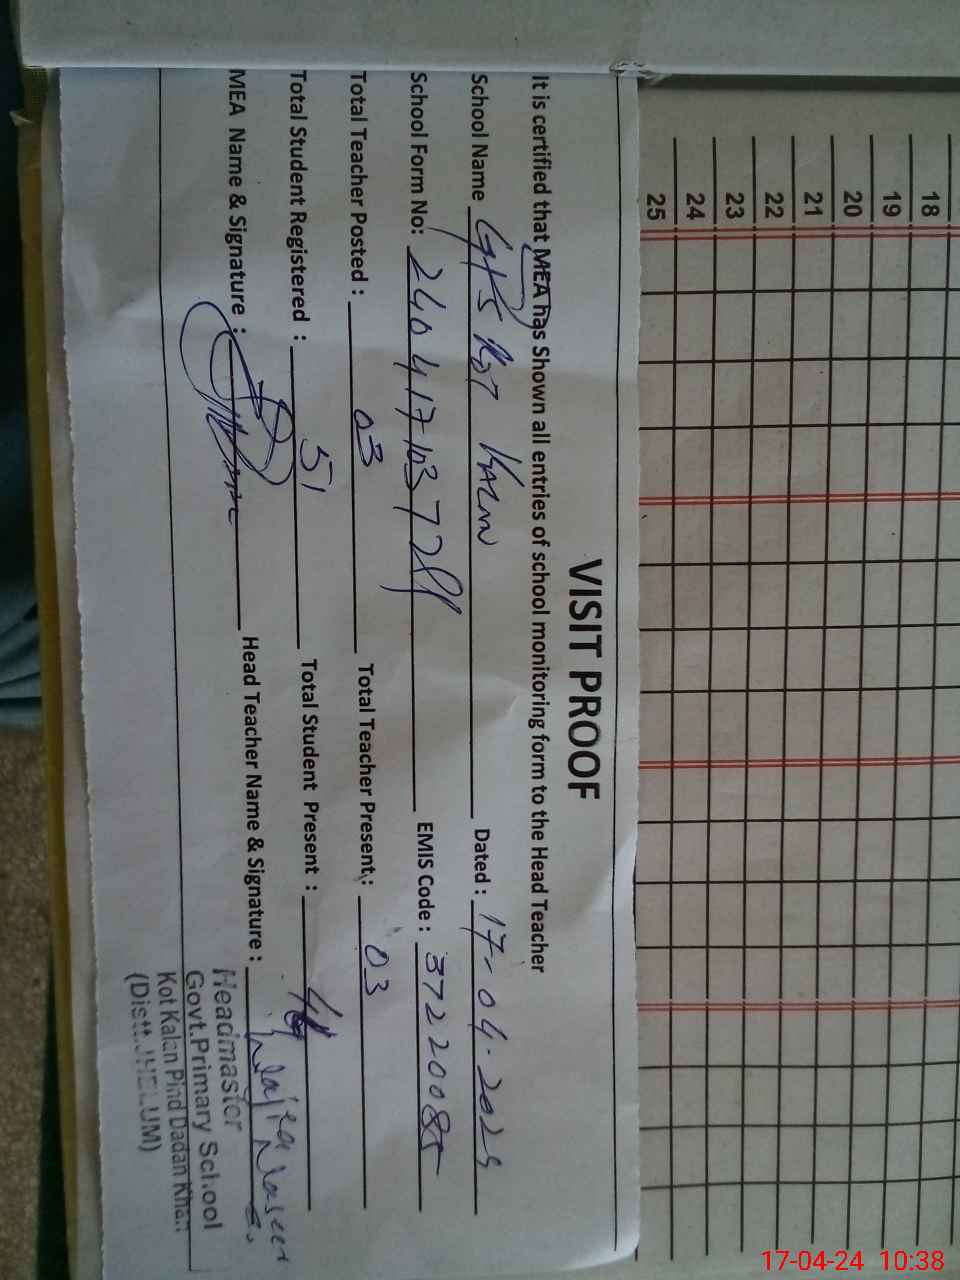 VISIT PROOF
It is certified that MEA has Shown all entries of school monitoring form to the Head Teacher
School Name GPS KOT KALAN Dated : 17-04-2024
School Form No: EMIS Code : 37220085
Total Teacher Posted : 03 Total Teacher Present : 03
Total Student Registered : 51 Total Student Present :
MEA Name & Signature : Head Teacher Name & Signature :
Headmaster
Govt.Primary School
Kot Kalan Pind Dadan Khan
(Distt.JHELUM)
18
19
20
21
22
23
24
25
17-04-24 10:38